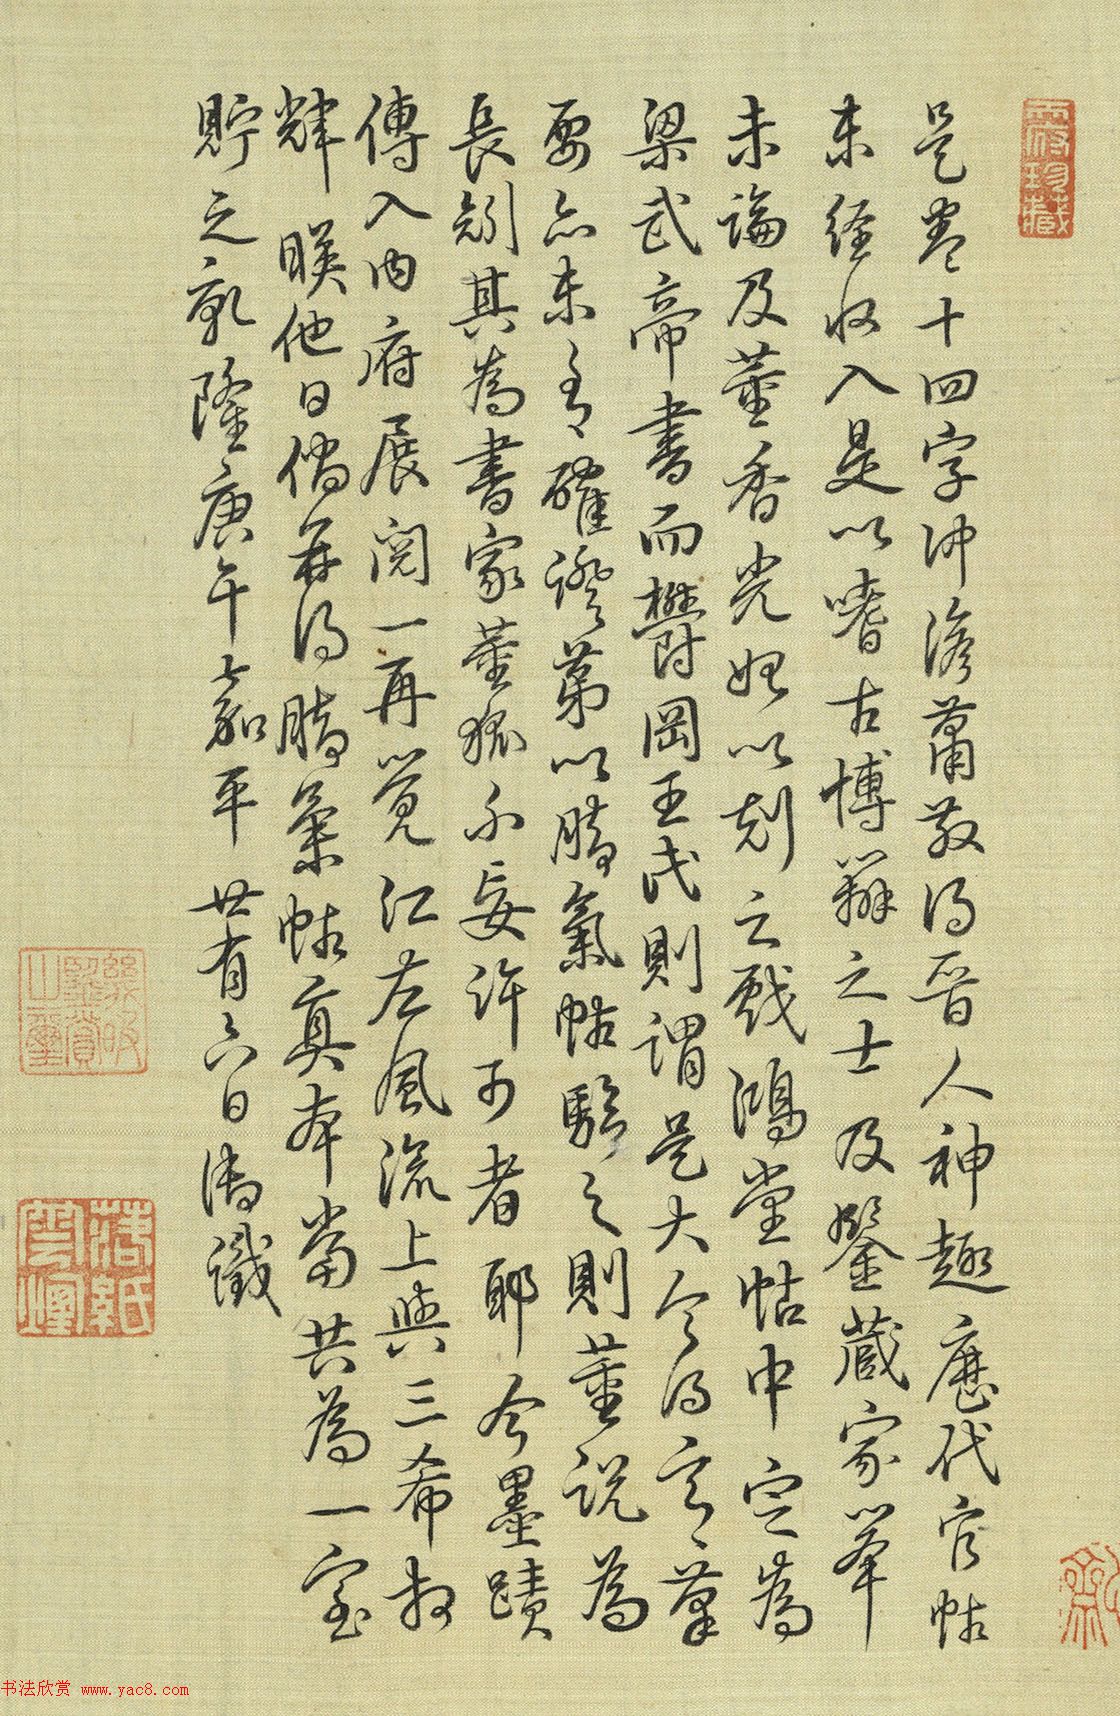 是卷十四字沖澹蕭散得晉人神趣歷代官帖
未經收入是以嗜古博辯之士及鑒藏家举
未論及董香光始以刻之戲鴻堂帖中定為
梁武帝書而鬱岡王氏則謂是大令得意筆
要亦未有確證第以腳氣帖驗之則董說為
長剡其為書家董狐不妄許可者耶今墨蹟
傳入內府展閱一再覺江左風流上與三希相
輝暎他日倘再得腳氣帖真本當共為一室
貯之乾隆庚午嘉平廿有六日御識
幾暇鑒賞之璽
落紙雲煙
书法欣赏 www.yac8.com